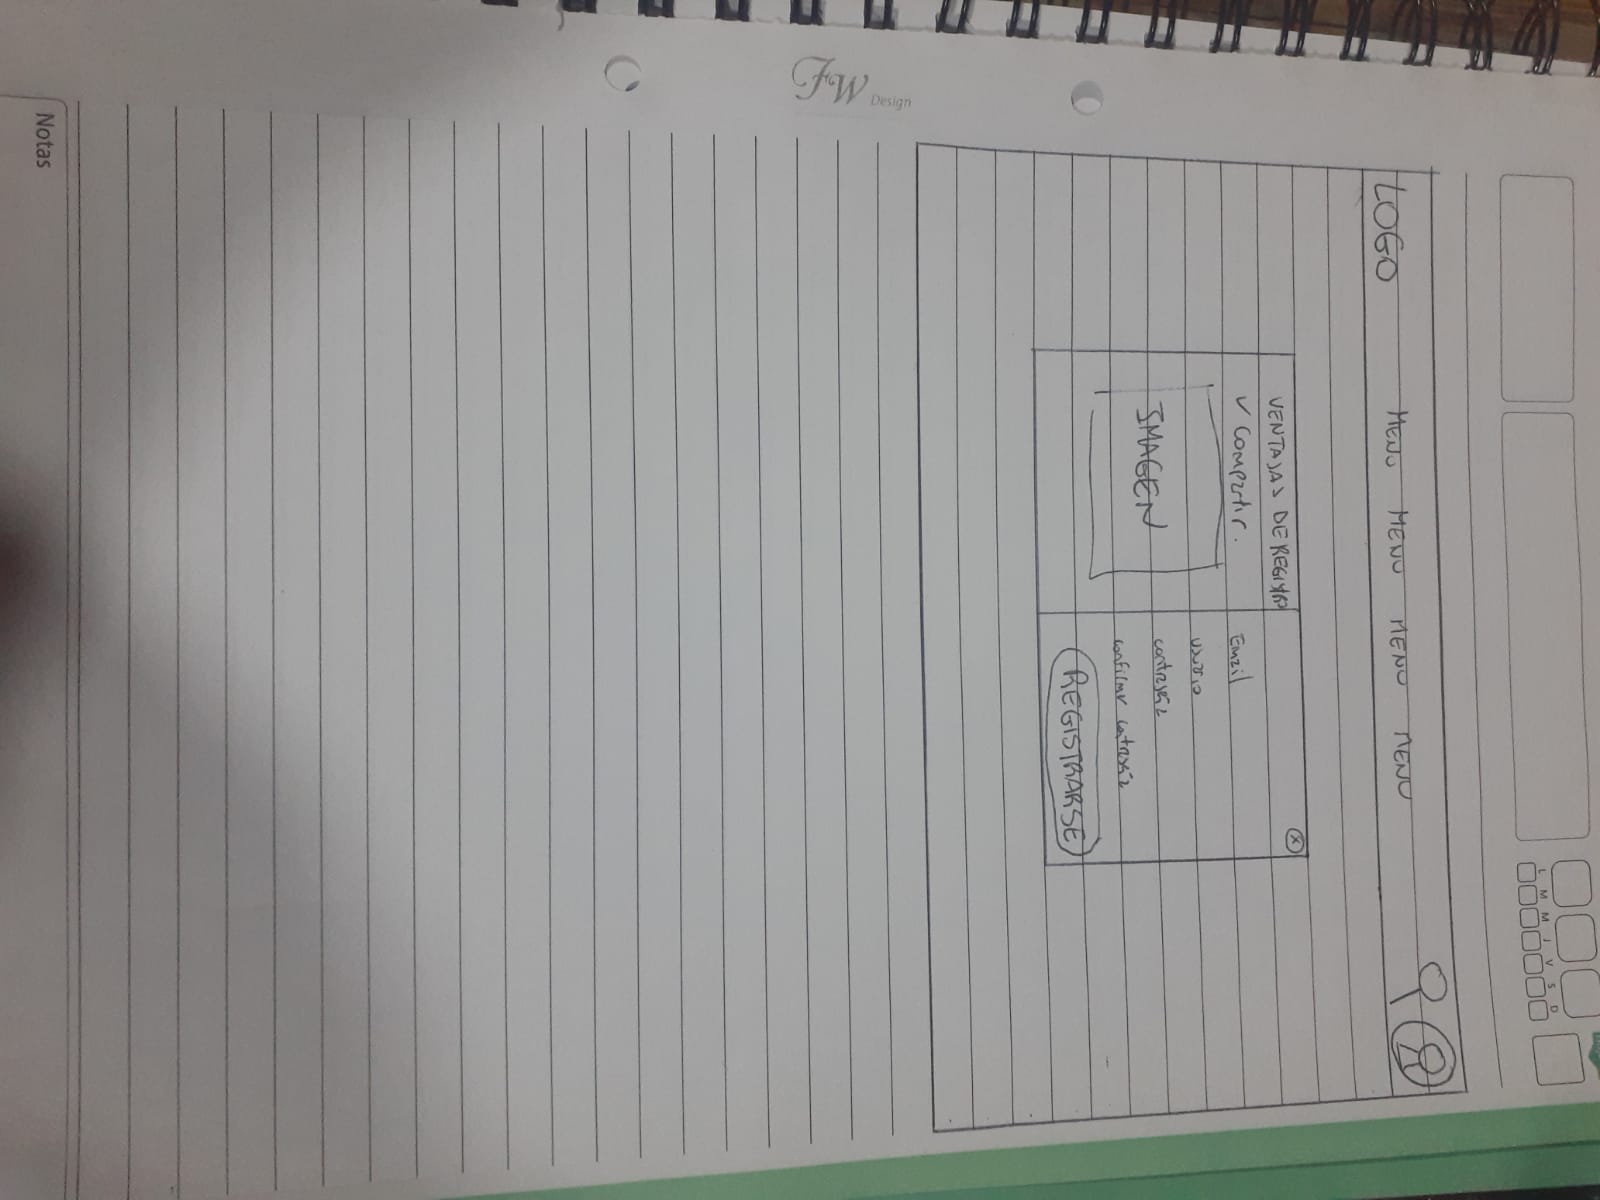 L M M J V S D
LOGO MENU MENU MENU MENU
X
VENTAJAS DE REGISTRO
✓ Compartir.
IMAGEN
Email
usuario
contraseña
confirmar contraseña
REGISTRARSE
FW Design
Notas